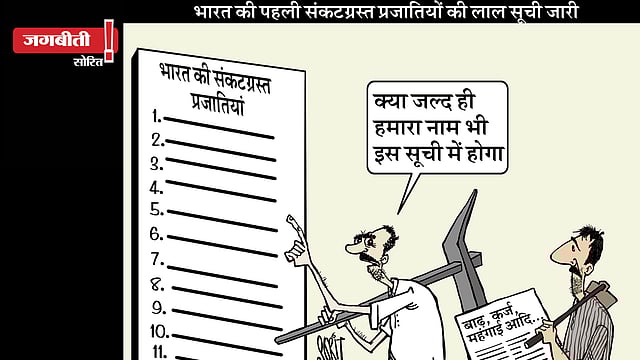 भारत की पहली संकटग्रस्त प्रजातियों की लाल सूची जारी
जगबीती!
सोरित
भारत की संकटग्रस्त
प्रजातियां
1.
2.
3.
4.
5.
6.
7.
8.
9.
10.
11.
क्या जल्द ही
हमारा नाम भी
इस सूची में होगा
बाढ़, कर्ज,
महंगाई आदि...